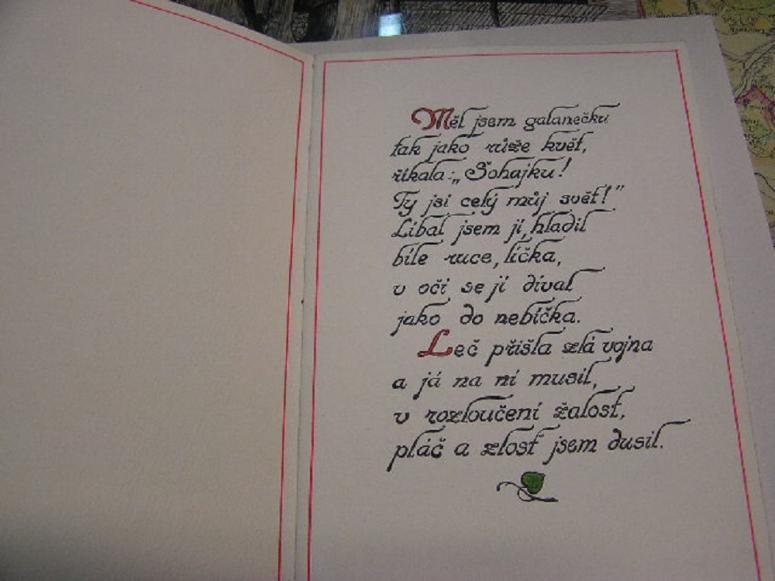 Měl jsem galanečku
tak jako růže květ,
říkala: „Šohajku!
Ty jsi celý můj svět!"
Líbal jsem ji, hladil
bílé ruce, líčka,
v oči se jí díval
jako do nebíčka.
Leč přišla zlá vojna
a já na ni musil,
v rozloučení žalost,
pláč a zlost jsem dusil.